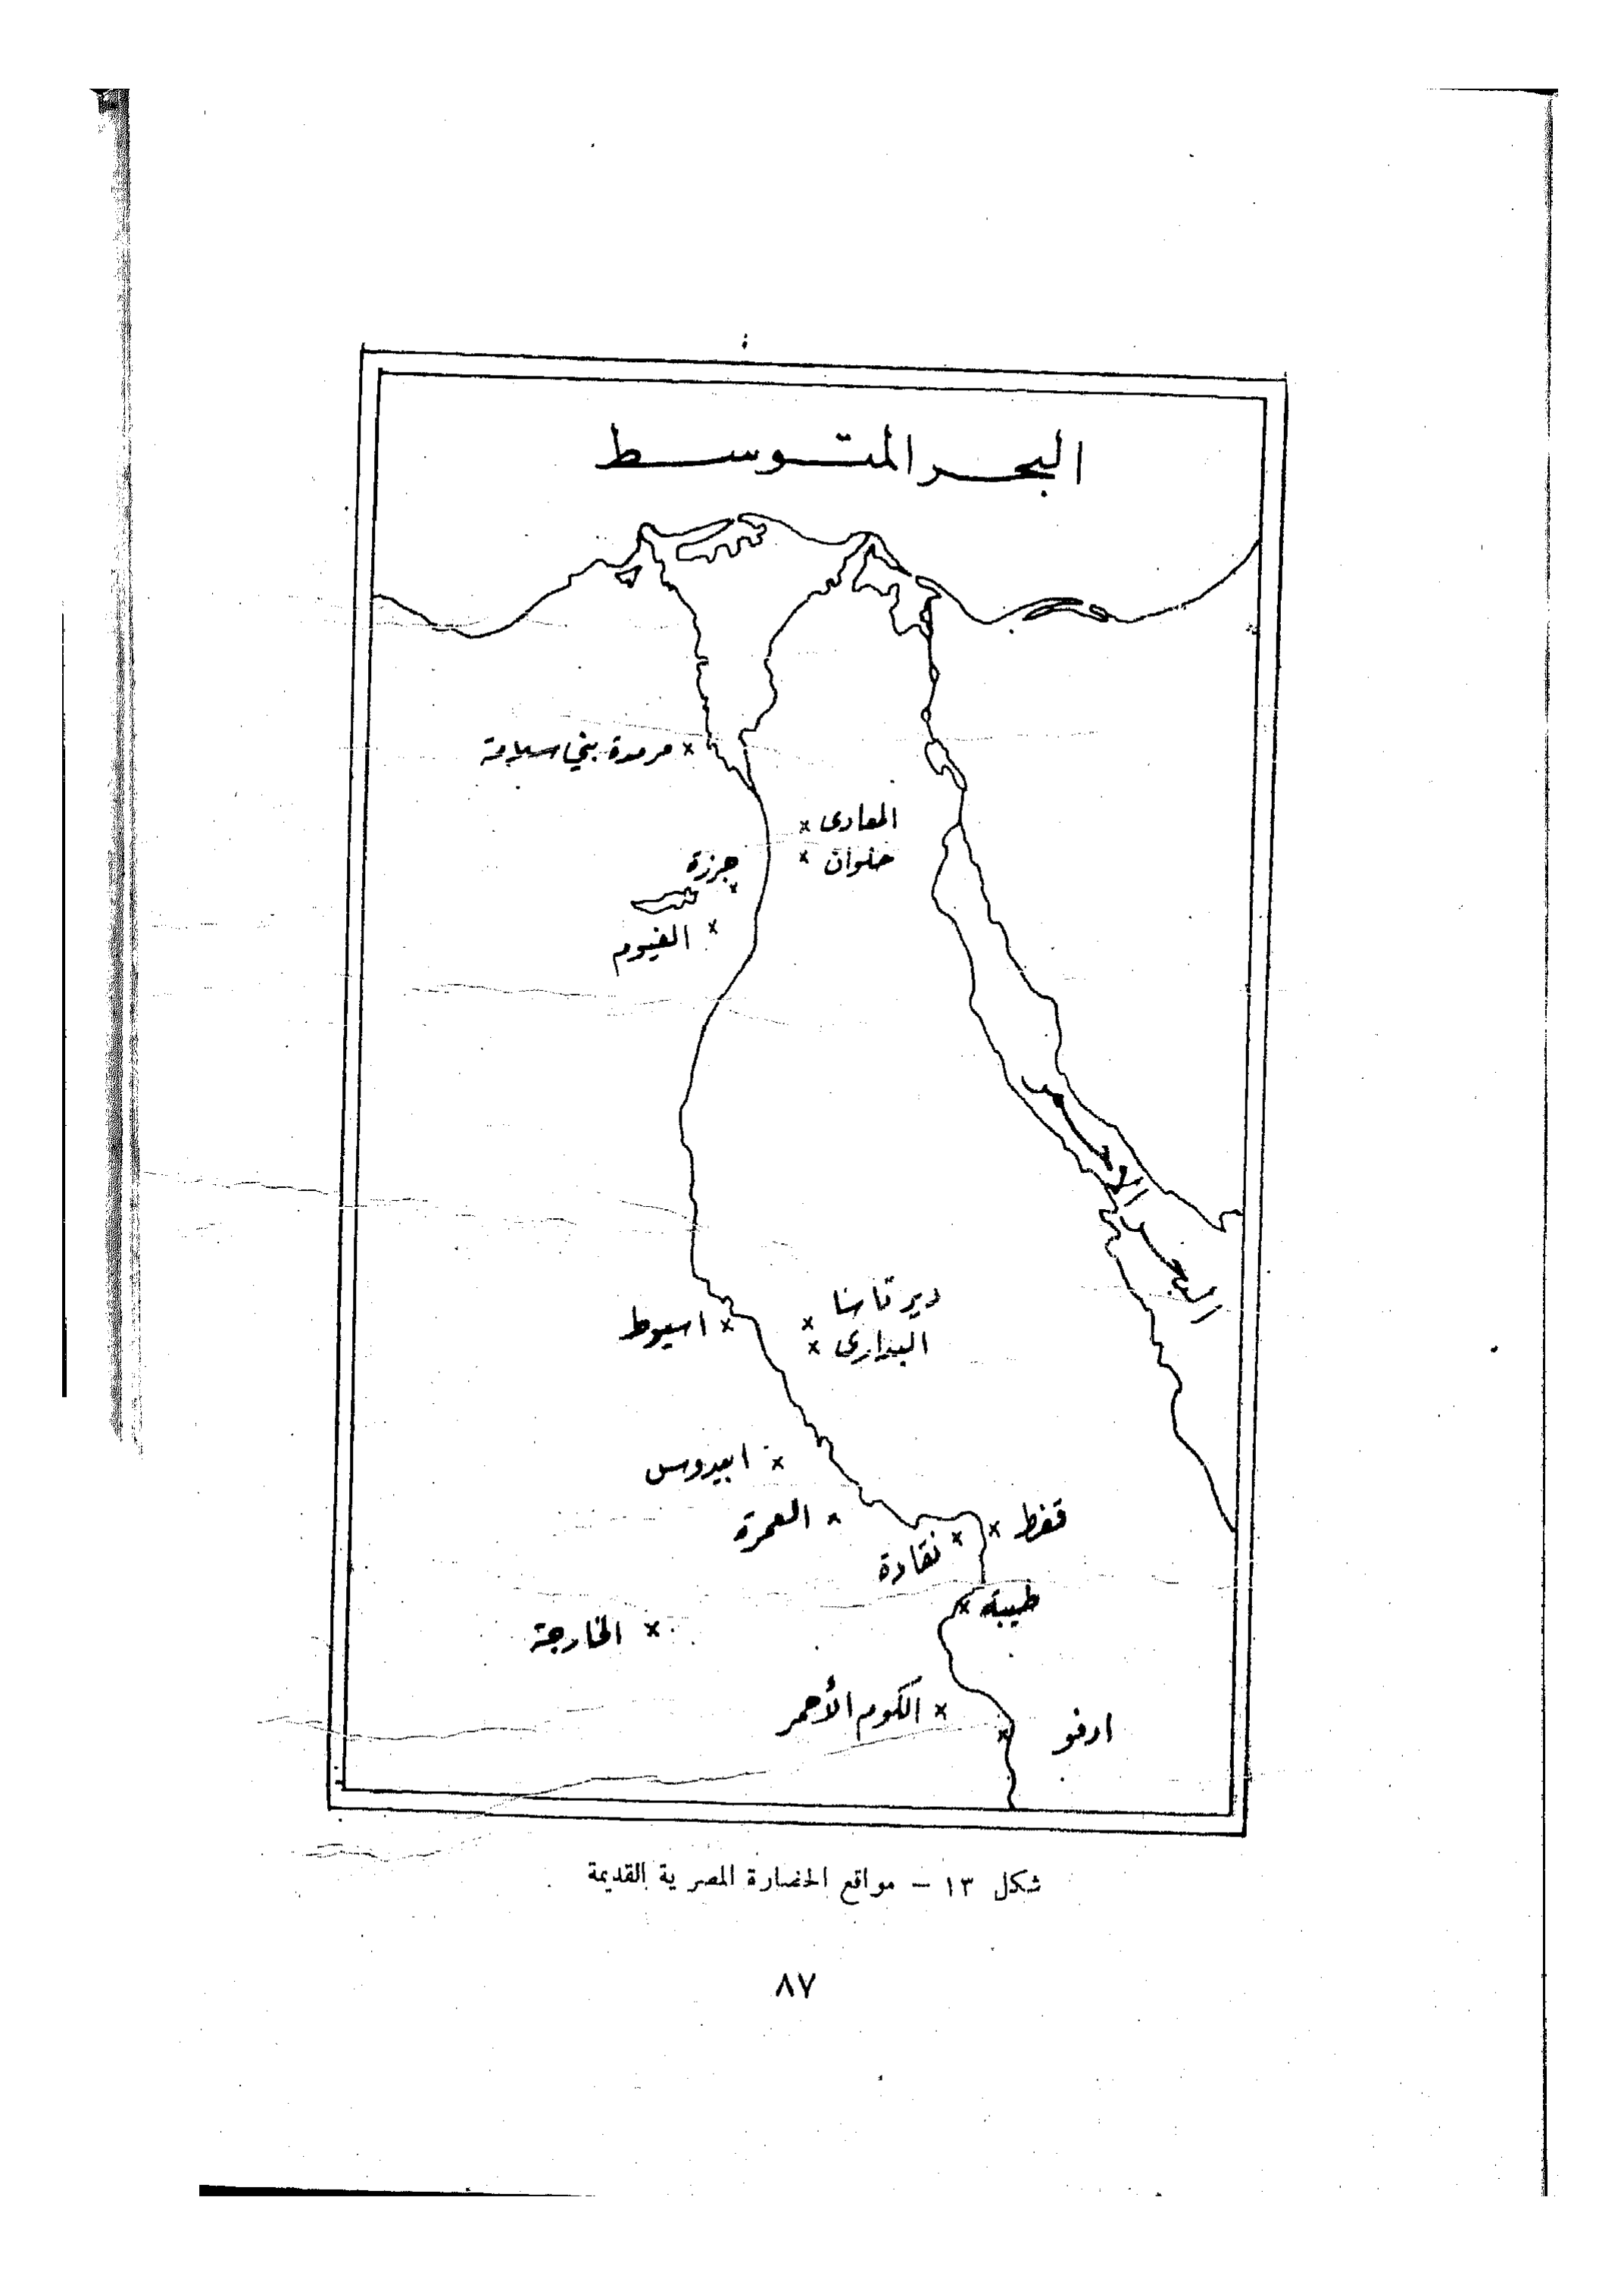 البحر المتوسط
مرمدة بني سلامة
المعادى
حلوان
جرزة
الفيوم
البحر الاحمر
دير تاسا
البدارى
اسيوط
ابيدوس
العمرة
قفط
نقادة
طيبة
الخارجة
الكوم الأحمر
ادفو
شكل ١٣ – مواقع الحضارة المصرية القديمة
٨٧